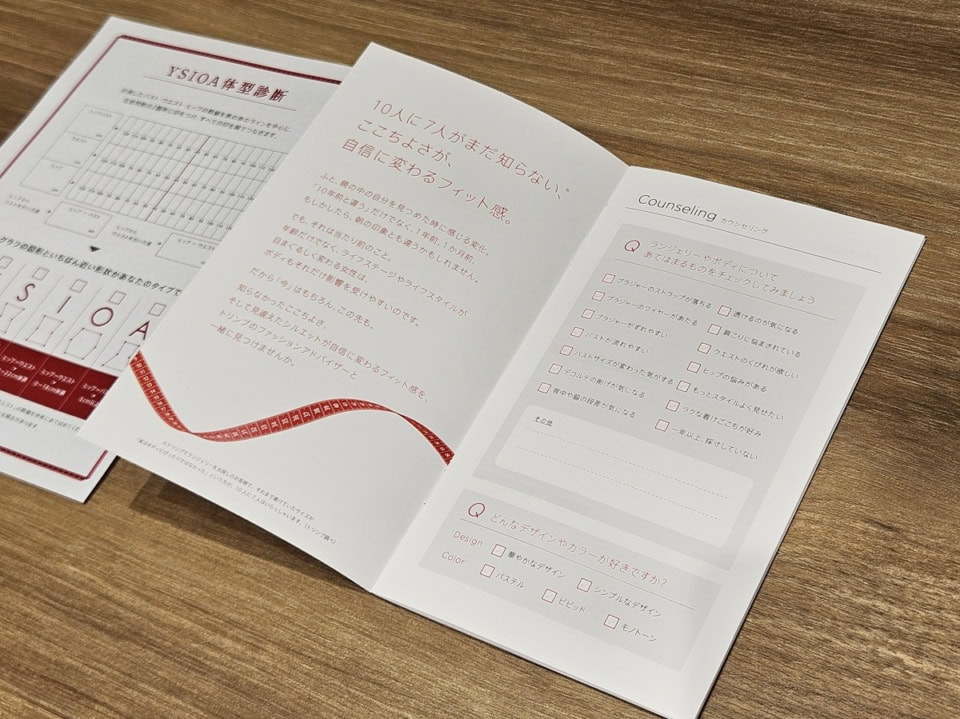 YSIOA体型診断
計測したバスト・ウエスト・ヒップの数値を表の赤のラインを中心に、
S
I
O
A
10人に7人がまだ知らない、*
ここちよさが、
自信に変わるフィット感。
ふと、鏡の中の自分を見つめた時に感じる変化。
「10年前と違う」だけでなく、1年前、1か月前、
もしかしたら、朝の印象とも違うかもしれません。
でも、それは当たり前のこと。
年齢だけでなく、ライフステージやライフスタイルが
目まぐるしく変わる女性は、
ボディもそれだけ影響を受けやすいのです。
だから「今」はもちろん、この先も、
知らなかったここちよさ、
そして見違えたシルエットが自信に変わるフィット感を、
トリンプのファッションアドバイザーと
一緒に見つけませんか。
Counseling カウンセリング
Q ランジェリーやボディについて
あてはまるものをチェックしてみましょう
ブラジャーのストラップが落ちる
ブラジャーのワイヤーがあたる
ブラジャーがずれやすい
バストが流れやすい
バストサイズが変わった気がする
デコルテの削げが気になる
背中や脇の段差が気になる
透けるのが気になる
肩こりに悩まされている
ウエストのくびれが欲しい
ヒップの悩みがある
もっとスタイルよく見せたい
ラクな着けごこちが好み
一年以上、採寸していない
その他
Q どんなデザインやカラーが好きですか?
Design 華やかなデザイン シンプルなデザイン
Color パステル ビビッド モノトーン